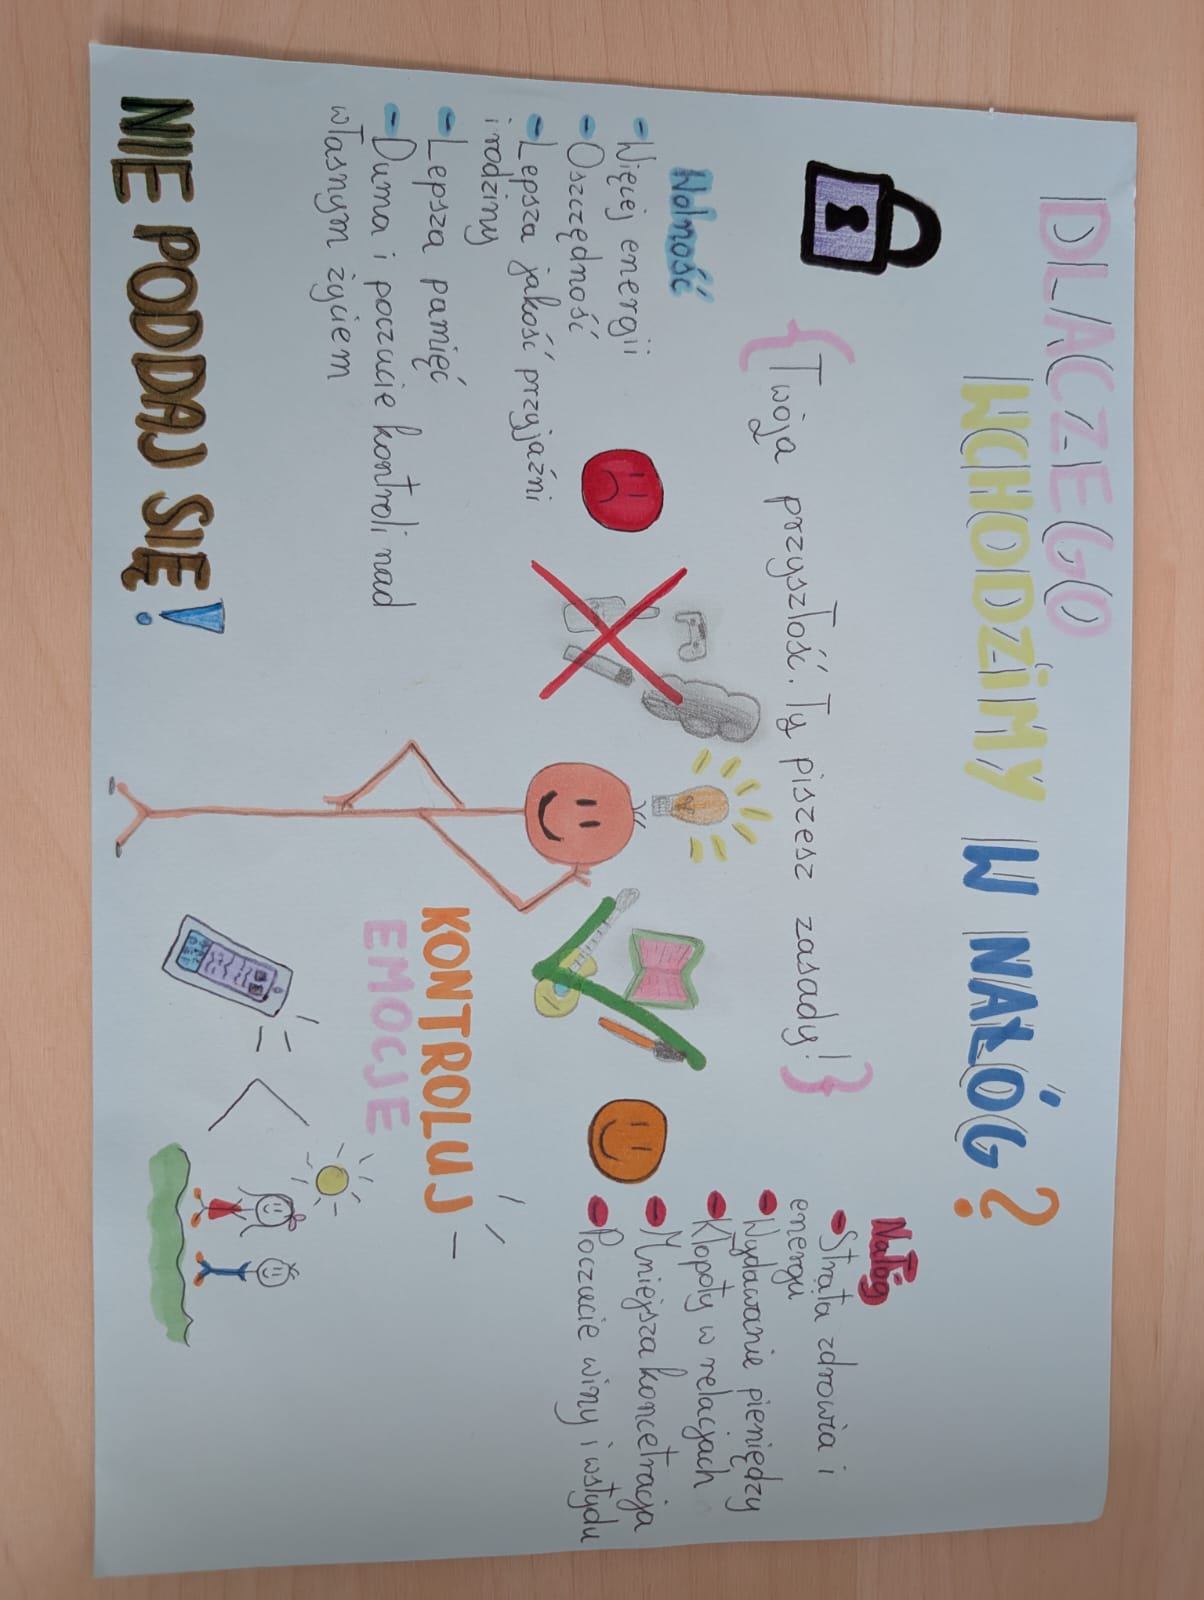 DLACZEGO
WCHODZIMY W NAŁÓG?
{Twója przyszłość. Ty piszesz zasady!}
Wolność
- Więcej energii
- Oszczędność
- Lepsza jakość przyjaźni
i rodziny
- Lepsza pamięć
- Duma i poczucie kontroli nad
własnym życiem
Nałóg
- Strata zdrowia i
energii
- Wydawanie pieniędzy
- Kłopoty w relacjach
- Mniejsza koncetracja
- Poczucie winy i wstydu
KONTROLUJ
EMOCJE
NIE PODDAJ SIĘ!